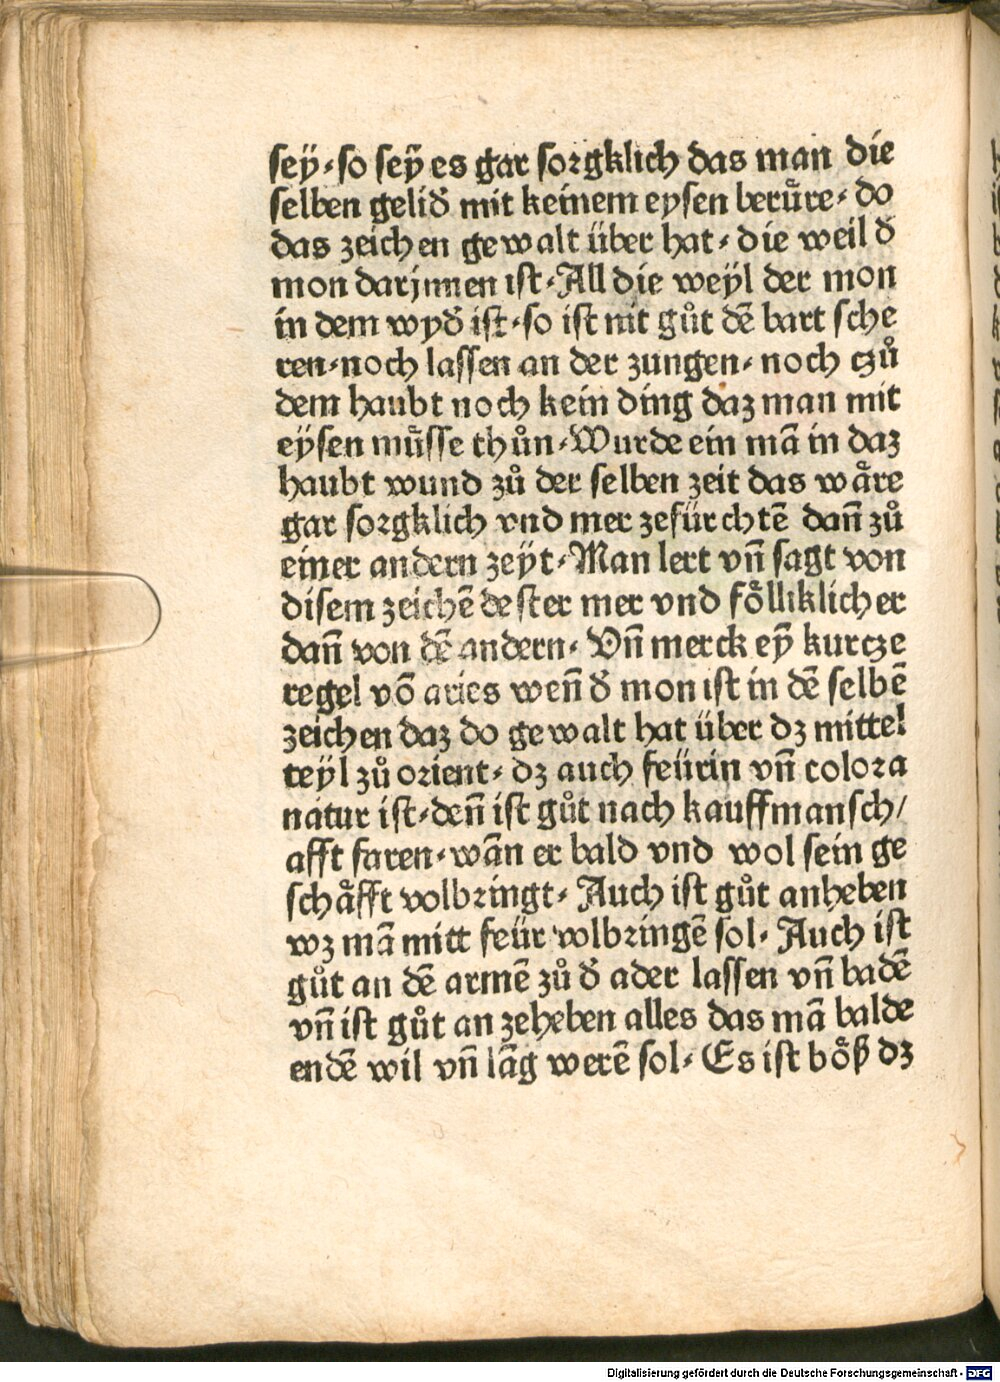 sey̋⸗so sey̋ es gar sorgklich das man die
selben gelid̕ mit keinem eysen berůre⸗ do
das zeichen gewalt über hat⸗ die weil d̕
mon darjnnen ist⸗All die wey̋l der mon
in dem wyd̕ ist⸗so ist nit gůt dē bart sche
ren⸗noch lassen an der zungen⸗ noch czů
dem haubt noch kein ding daz man mit
ey̋sen můsse thůn⸗Wurde ein mā in daz
haubt wund zů der selben zeit das wåre
gar sorgklich vnd mer zefürchtē dañ zů
einer andern zey̋t⸗Man lert vñ sagt von
disem zeichē dester mer vnd fo̊lliklicher
dañ von dē andern⸗ Vñ merck ey̅ kurcze
regel vō aries weñ d̕ mon ist in dē selbē
zeichen daz do gewalt hat über dz mittel
tey̋l zů orient⸗ dz auch feürin vñ colora
natur ist⸗deñ ist gůt nach kauffmansch/
afft faren⸗wān er bald vnd wol sein ge
schåfft volbringt⸗ Auch ist gůt anheben
wz mā mitt feür volbringē sol⸗ Auch ist
gůt an dē armē zů d̕ ader lassen vñ badē
vñ ist gůt an zeheben alles das mā balde
endē wil vñ lāg werē sol⸗ Es ist bo̊ß dz
Digitalisierung gefördert durch die Deutsche Forschungsgemeinschaft - DFG